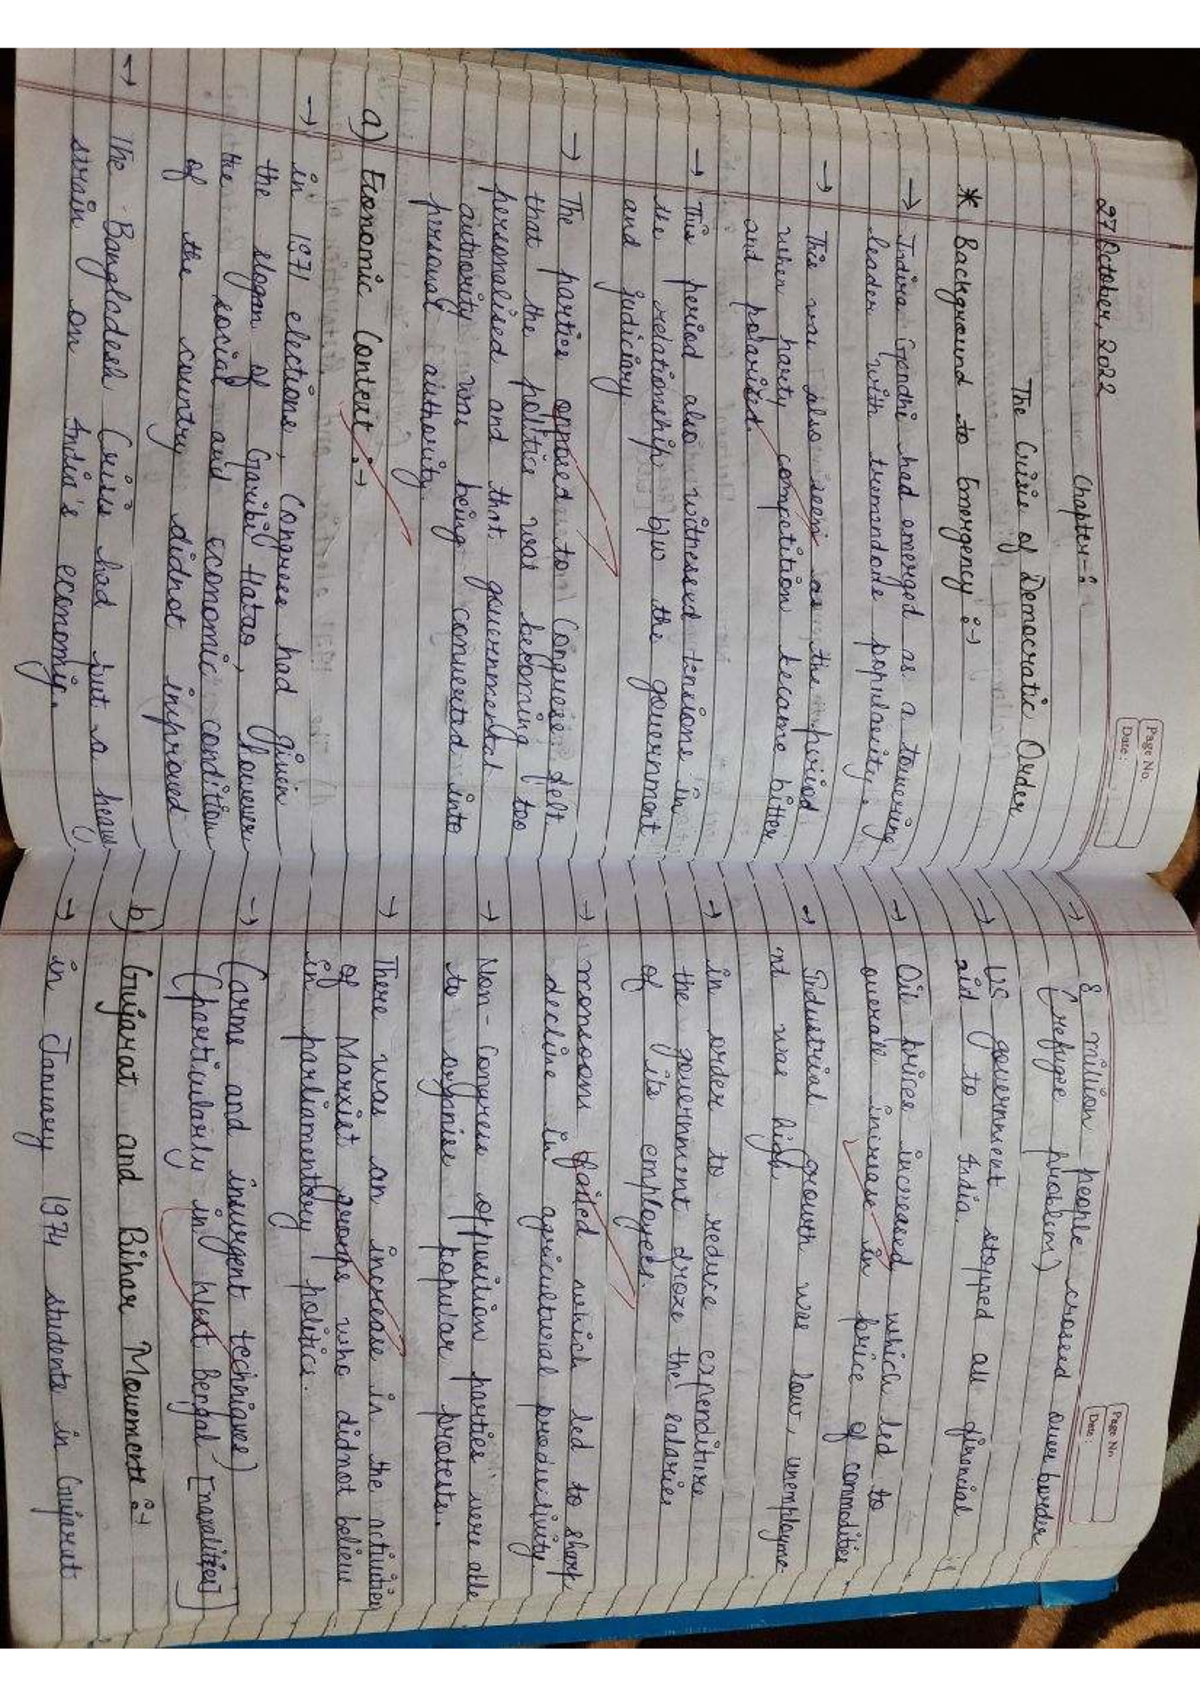 Page No.
Date:
27 October, 2022
Chapter-6
The Crisis of Democratic Order
* Background to Emergency :→
→ Indira Gandhi had emerged as a towering
leader with tremandode popularity.
→ This was also seen as the period
when party competition became bitter
and polarized.
→ This period also witnessed tensions in
the relationship b/w the government
and judiciary
→ The parties opposed to Congress felt
that the politics was becoming too
personalised and that governmental
authority was being converted into
personal authority.
a) Economic Context :→
→ in 1971 elections, Congress had given
the slogan of Garibi Hatao, however
the social and economic condition
of the country didnot improved
→ The Bangladesh Crisis had put a heavy
strain on India's economy.
Page No
Date:
→ 8 million people crossed over border
(refugee problem)
→ US government stopped all financial
aid to India.
→ Oil prices increased which led to
overall increase in price of commodities
→ Industrial growth was low, unemployme
nt was high
→ in order to reduce expenditure
the government froze the salaries
of its employees.
→ monsoons failed which led to sharp
decline in agricultural productivity
→ Non-Congress opposition parties were able
to organise popular protests.
→ There was an increase in the activities
of Marxist groups who didnot believe
in parliamentary politics.
→ (arms and insurgent techniques)
(particularly in West Bengal [naxalites]
b) Gujarat and Bihar Movements :→
→ in January 1974 students in Gujarat